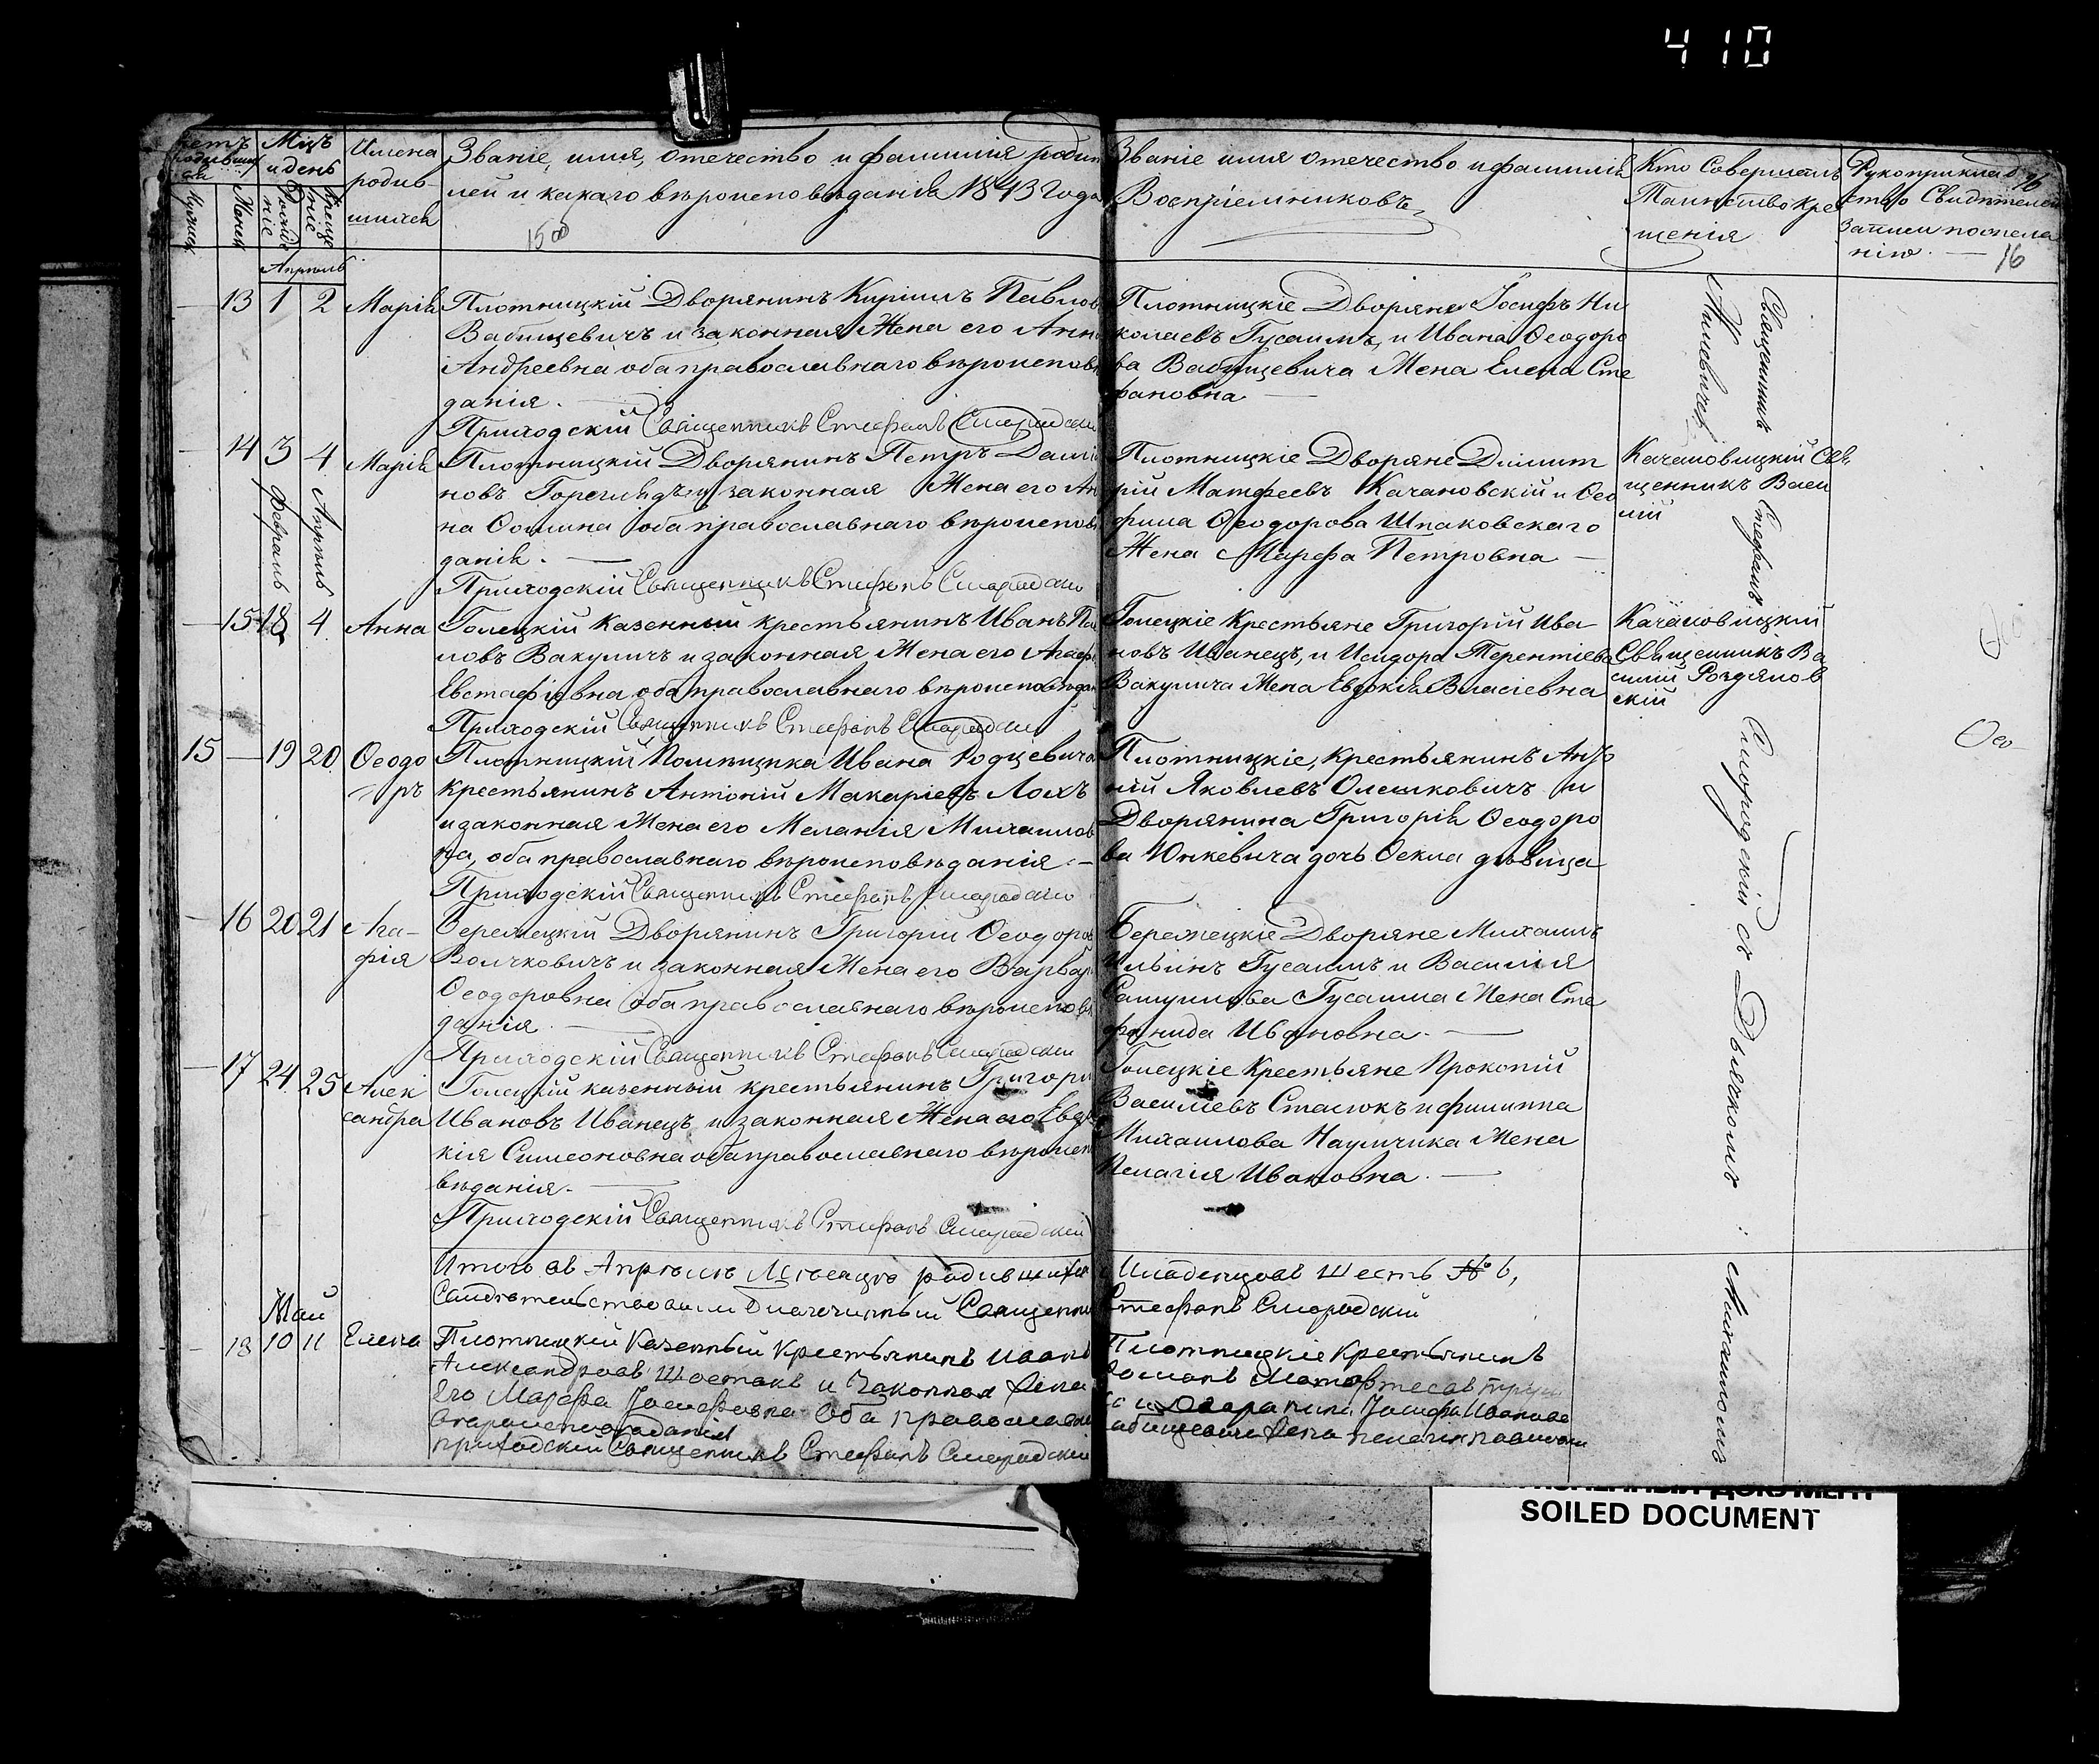 410
Счетъ родившихся
Мужеск
Женск
Мцъ и день
Рожденіе
Крещеніе
Имена
родив-
шихся
Званіе, имя, отечество и фамилія родит
лей и какаго вѣроисповѣданія 1843 года
Званіе имя отечество и фамилія
Воспріемниковъ
Кто Совершалъ
Таинство кре
щенія
Рукоприклад
ство Свидѣтелей
Записи по жела
нію.
16
16
Апрѣль
13 1 2 Марія
Плотницкій Дворянинъ Кирилъ Павлов
Вабищевичъ и законная Жена его Анна
Андреевна оба православнаго вѣроисповѣ
данія.
Приходскій Священникъ Стефанъ Смородскій
Плотницкіе Дворяне Іосифъ Ни
колаевъ Гусаимъ, и Ивана Ѳеодоро
ва Вабищевича Жена Елена Сте
фановна
14 3 4 Марія
Февраль Апрѣль
Плотницкій Дворянинъ Петръ Даміа
новъ и законная Жена его Ан
на Ѳомина оба православнаго вѣроисповѣ
данія.
Приходскій Священникъ Стефанъ Смородскій
Плотницкіе Дворяне Димит
рій Матфеевъ Качановскій и Ѳео
фила Ѳеодорова Шпаковскаго
Жена Марфа Петровна
Качановицкій Свя
щенникъ Васи
лій
15 18 4 Анна
Голецкій казенный крестьянинъ Иванъ Па
ловъ Вакуличъ и законная Жена его Агаф
Евстафіевна оба православнаго вѣроисповѣдан
Приходскій Священникъ Стефанъ Смородскій
Голецкіе Крестьяне Григорій Ива
новъ Иванецъ, и Исидора Терентіева
Вакулича Жена Евдокія Власіевна
Качановицкій
Священникъ Ва
силій Рожданов
скій
15 — 19 20 Ѳеодо
ръ
Плотницкій Помѣщика Ивана Родцевича
крестьянинъ Антоній Макаріевъ Лохъ
и законная Жена его Меланія Михаилов
на, оба православнаго вѣроисповѣданія.—
Приходскій Священникъ Стефанъ Смородскій
Плотницкіе, крестьянинъ Анто
ній Яковлевъ Олешковичъ и
Дворянина Григорія Ѳеодоро
ва Юнкевича дочь Ѳекла дѣвица
Ѳео-
16 20 21 Ага-
фія
Бережецкій Дворянинъ Григорій Ѳеодоров
Волчковичъ и законная Жена его Варвар
Ѳеодоровна оба православнаго вѣроисповѣ
данія.
Приходскій Священникъ Стефанъ Смородскій
Бережецкіе Дворяне Михаилъ
Ильинъ Гусаимъ и Василія
Самуилова Гусаима Жена Сте
фанида Ивановна.
17 24 25 Алек
сандра
Голецкій казенный крестьянинъ Григорій
Ивановъ Иванецъ и законная Жена его Евдо
кія Симеоновна оба православнаго вѣроиспо
вѣданія.
Приходскій Священникъ Стефанъ Смородскій
Голецкіе Крестьяне Прокопій
Василіевъ Стасюкъ и филиппа
Михаилова Наумчика Жена
Пелагія Ивановна.
Итого въ Апрѣлѣ Мѣсяцѣ родившихся
Младенцовъ Шесть № 6,
Свидѣтельствовалъ Благочинный Священни
Стефанъ Смородскій
Май
18 10 11 Елена
Плотницкій Казенный Крестьянинъ Иванъ
Александровъ Шостакъ и Законная Жена
Его Марфа Іосифовна Оба православн
вѣроисповѣданія
приходскій Священникъ Стефанъ Смородскій
Плотницкіе Крестьянинъ
Романъ Матфеевъ
и Дворянина Іосифа Иванова
абищевича Жена пелагія павловна
Священникъ
Стефанъ Смородскій съ Дьячкомъ
SOILED DOCUMENT